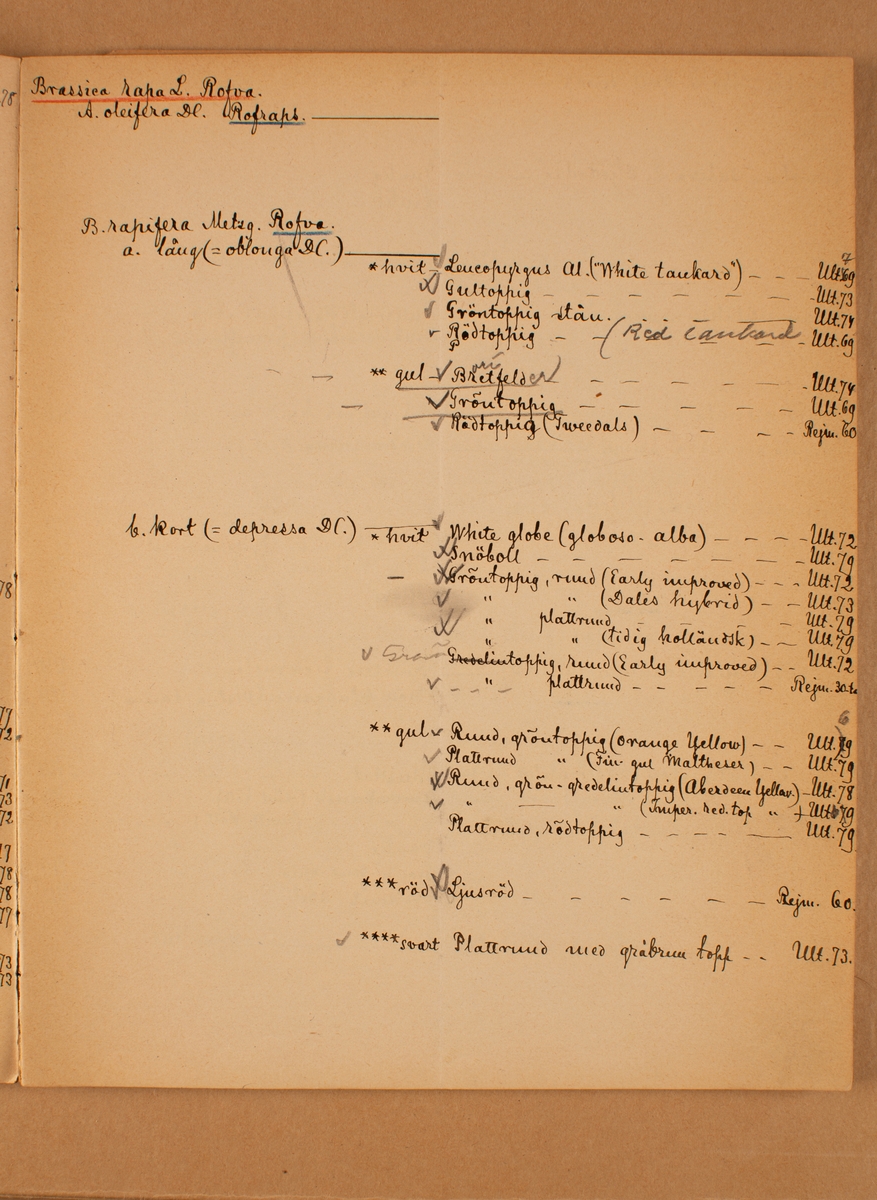 78
Brassica rapa L. Rofva.
A. oleifera DC. Rofraps.
B. rapifera Metzg. Rofva.
a. lång (= oblonga DC.)
* hvit - Leucopyrgus Al. ("White tankard") - - - Ult. 69
Gultoppig - - - - - - Ult. 73
Gröntoppig stån. Ult. 74
Rödtoppig - - (Red tankard - - Ult. 69
** gul - Bretfelder - - - - - Ult. 74
Gröntoppig - - - - - Ult. 69
Rödtoppig (Tweedals) - - - - Rejm. 60
b. kort (= depressa DC.)
* hvit White globe (globoso-alba) - - - - Ult. 72
Snöboll - - - - - - Ult. 79
Gröntoppig, rund (Early improved) - - - Ult. 72
" " (Dales hybrid) - - Ult. 73
" plattrund - - - Ult. 79
" " (tidig holländsk) - - Ult. 79
Gredelintoppig, rund (Early improved) - - Ult. 72
" plattrund - - - - - Rejm.
6
** gul Rund, gröntoppig (Orange Yellow) - - Ult. 79
Plattrund " (Fin-gul Maltheser) - - Ult. 79
Rund, grön-gredelintoppig (Aberdeen Yellow.) - Ult. 78
" — " (Imper. red. top " Ult. 79
Plattrund, rödtoppig - - - - — Ult. 79
*** röd Ljusröd - - - - - - Rejm. 60.
**** svart Plattrund med gråbrun topp - - Ult. 73.